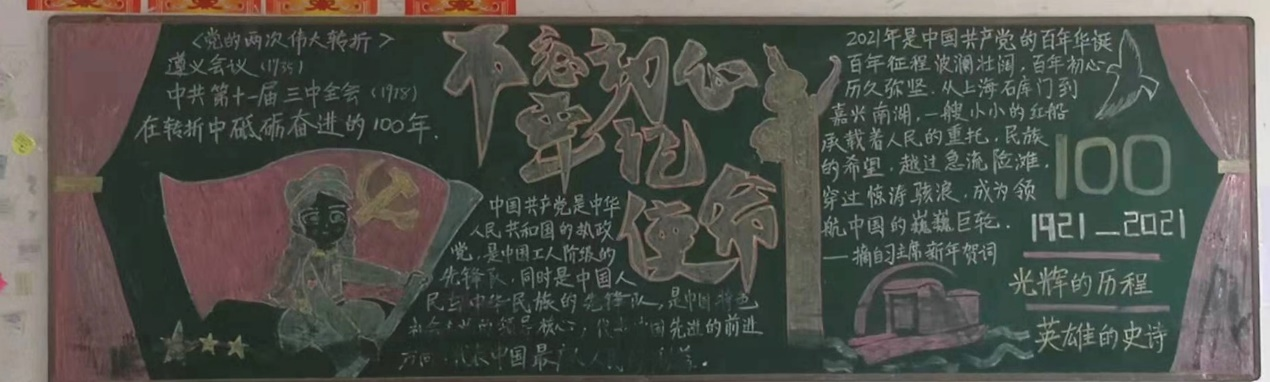 〈党的两次伟大转折〉
遵义会议（1935）
中共第十一届三中全会（1978）
在转折中砥砺奋进的100年.
不忘初心
牢记
使命
中国共产党是中华
人民共和国的执政
党，是中国工人阶级的
先锋队，同时是中国人
民与中华民族的先锋队，是中国特色
领导核心，中国先进的前进
方向，代表中国最广人
2021年是中国共产党的百年华诞
百年征程波澜壮阔，百年初心
历久弥坚.从上海石库门到
嘉兴南湖，一艘小小的红船
承载着人民的重托，民族
的希望，越过急流险滩，
穿过惊涛骇浪，成为领
航中国的巍巍巨轮.
—摘自习主席新年贺词
100
1921—2021
光辉的历程
英雄的史诗